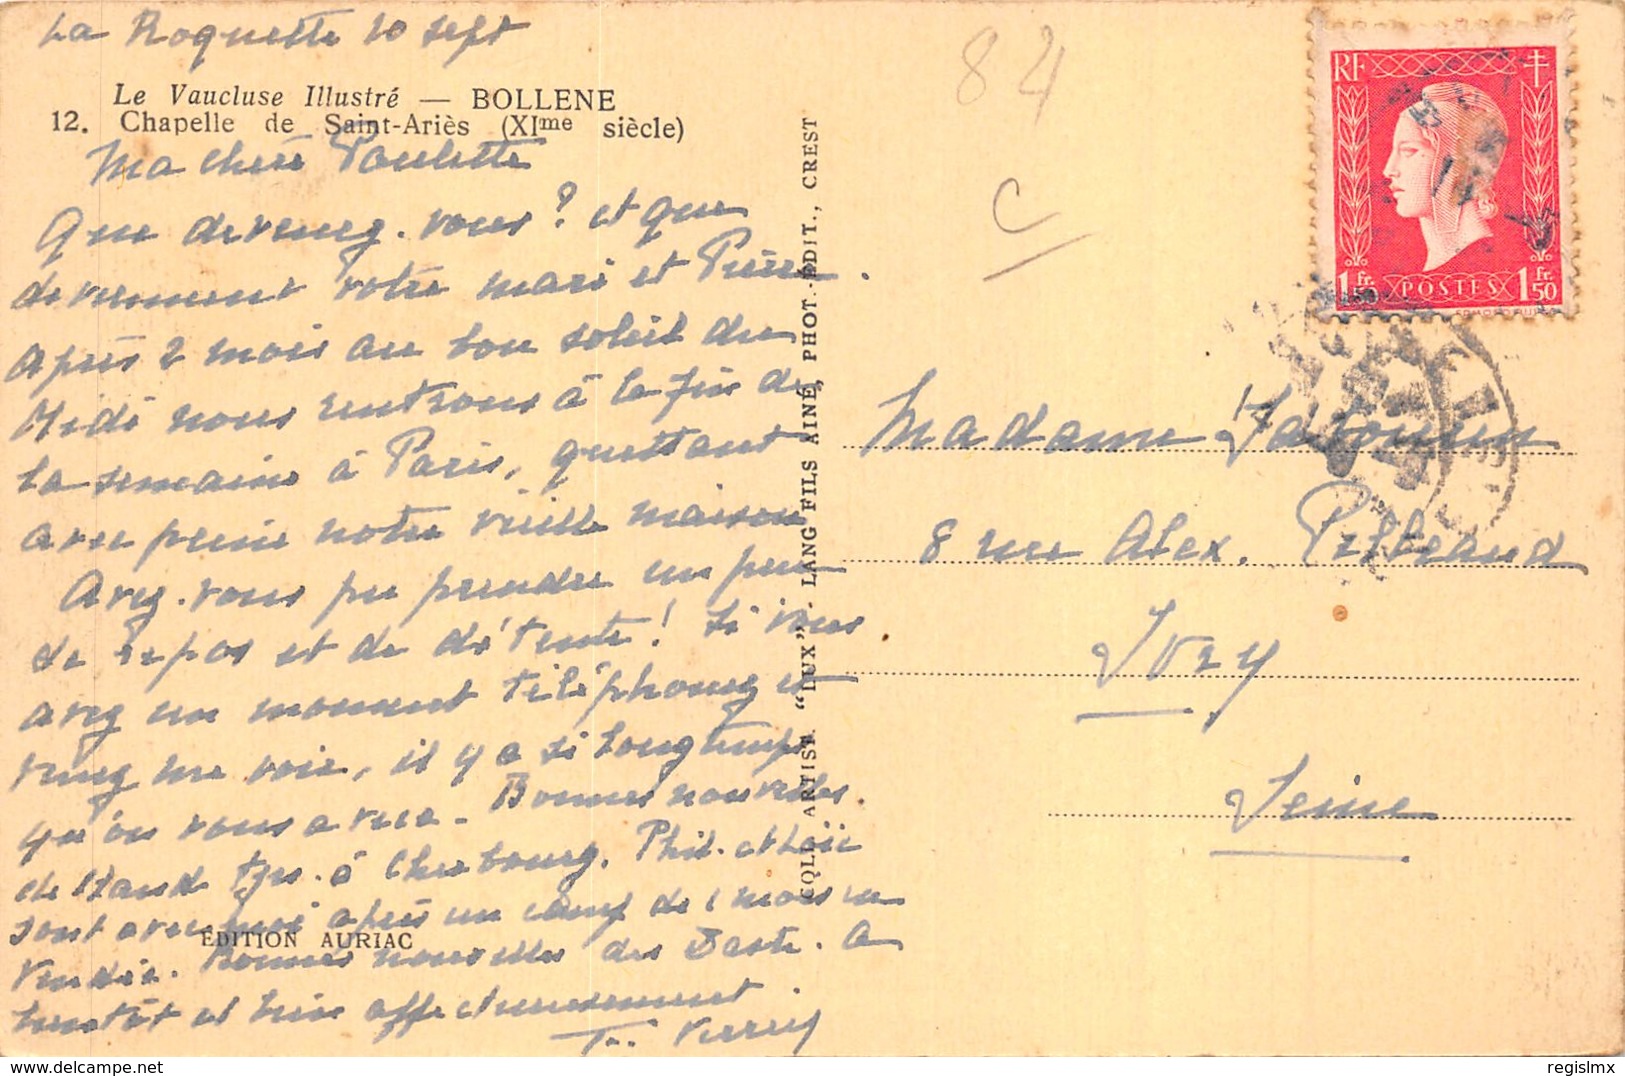 La Roquette 10 sept
Le Vaucluse Illustré — BOLLENE
12. Chapelle de Saint-Ariès (XIme siècle)
Ma chère Paulette
Que devenez-vous ? et que
deviennent votre mari et Pierre.
Après 2 mois au bon soleil du
Midi nous rentrons à la fin de
la semaine à Paris, quittant
avec peine notre vieille maison
Avez-vous pu prendre un peu
de repos et de détente ! Si vous
avez un moment téléphonez et
venez me voir, il y a si longtemps
qu'on vous a vue - Bonnes nouvelles
de à Cherbourg. Phil. et Loïc
sont avec moi après un camp de 1 mois en
Vendée. Bonnes nouvelles des . A
bientôt et bien affectueusement.
EDITION AURIAC
COLL. ARTIST. "LUX" - LANG FILS AINÉ, PHOT.-ÉDIT., CREST
84
C
RF
1 Fr. 50
POSTES
1 Fr. 50
Madame
8 rue Alex.
Ivry
Seine
regislmx